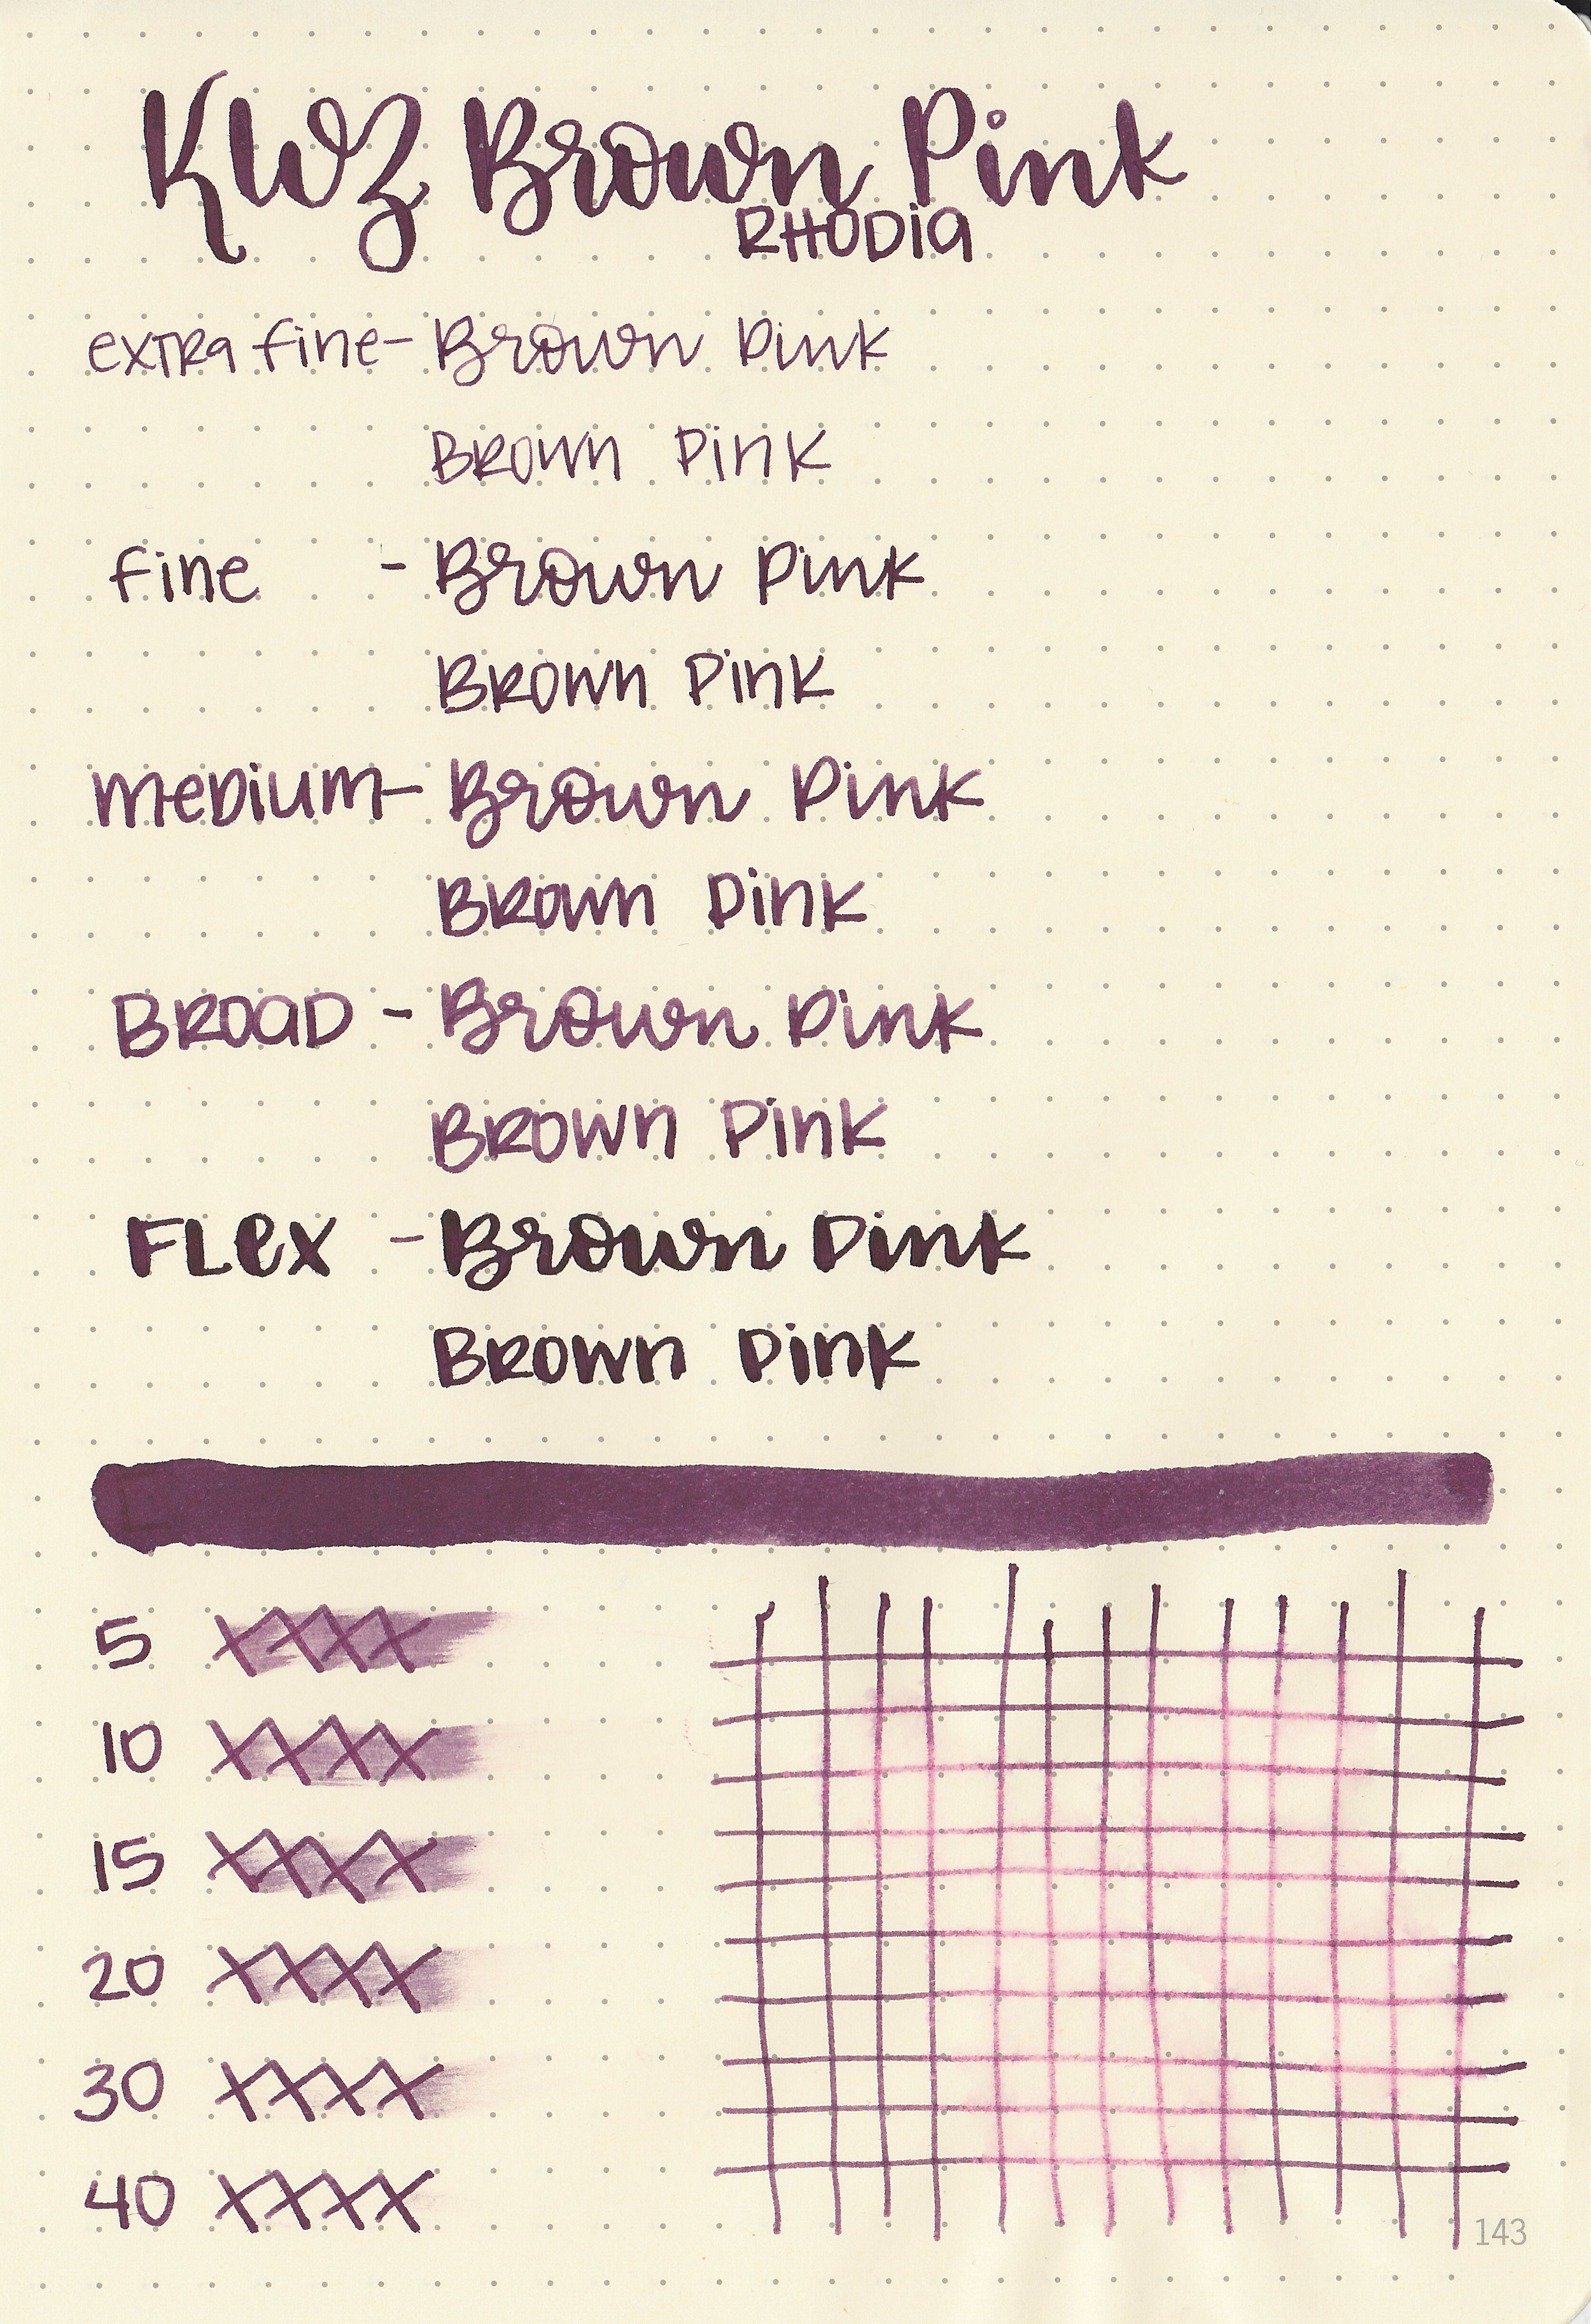 KWZ Brown Pink
RHODIA
extra fine- Brown Pink
Brown Pink
fine - Brown Pink
Brown Pink
medium- Brown Pink
Brown Pink
Broad - Brown Pink
Brown Pink
Flex - Brown Pink
Brown Pink
5 XXXX
10 XXXX
15 XXXX
20 XXXX
30 XXXX
40 XXXX
143